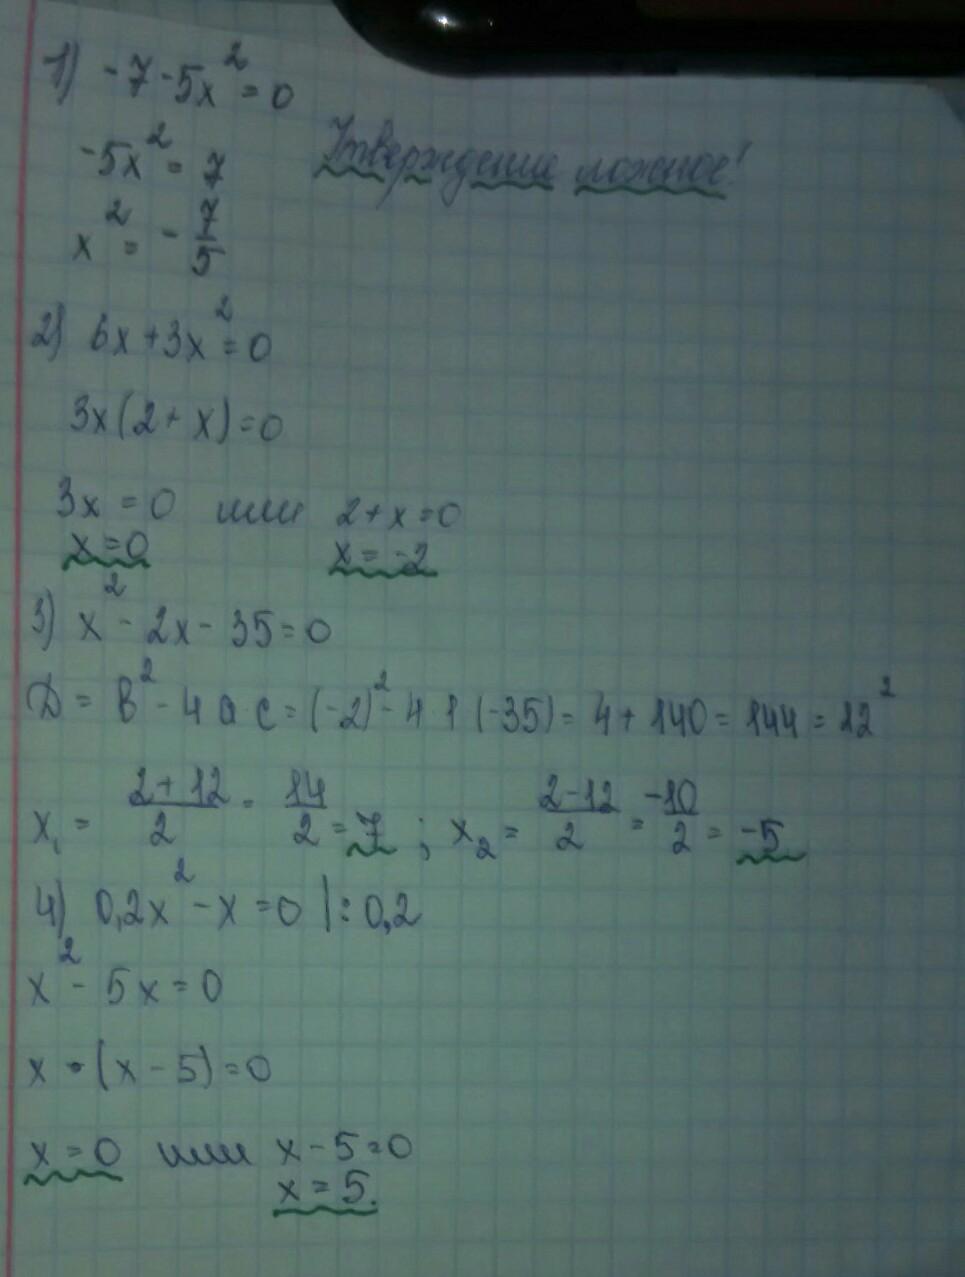 1) -7-5x²=0
-5x²=7 Утверждение ложное!
x²=-7/5
2) 6x+3x²=0
3x(2+x)=0
3x=0 или 2+x=0
x=0 x=-2
3) x²-2x-35=0
D=в²-4 a·c=(-2)²-4·1(-35)=4+140=144=12²
x₁=(2+12)/2=14/2=7; x₂=(2-12)/2=-10/2=-5
4) 0,2x²-x=0 |:0,2
x²-5x=0
x·(x-5)=0
x=0 или x-5=0
x=5.